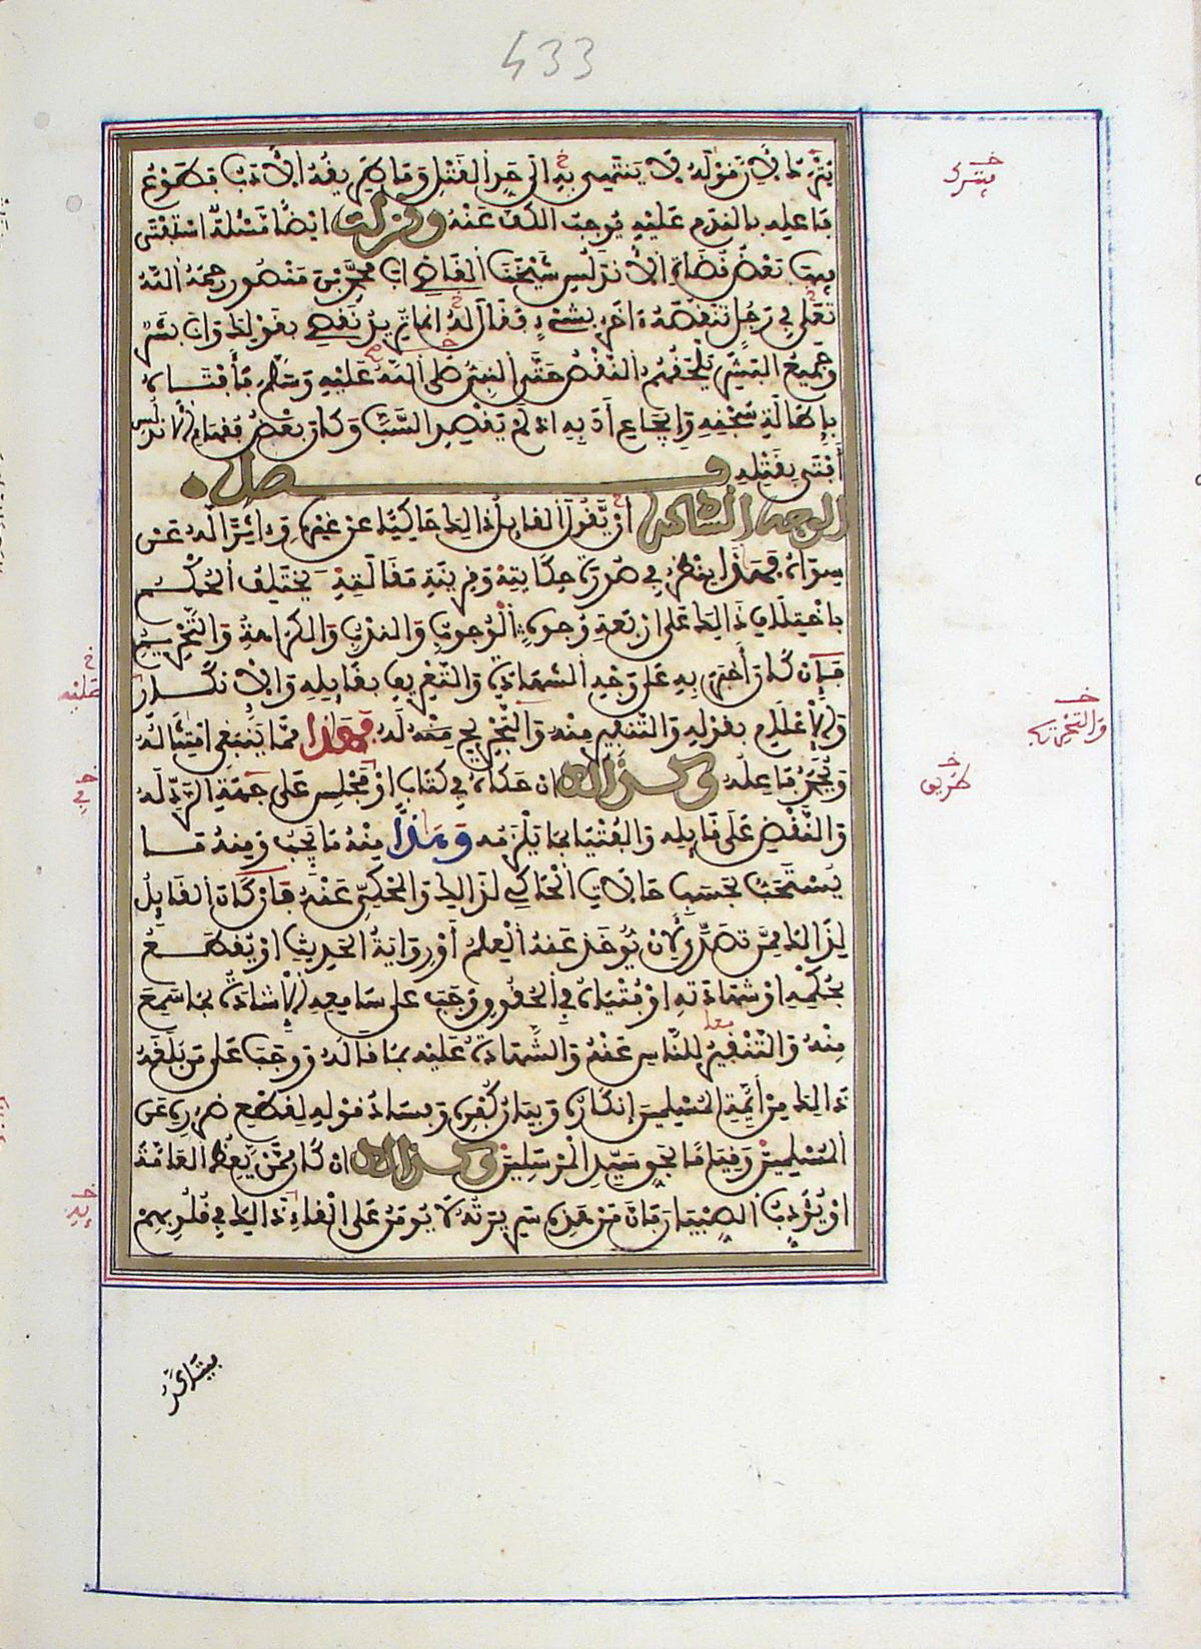 433
يترك لأن قوله لا ينتهي به إلى حد القتل وما طريقه الأدب فطوع
فاعله بالندم عليه يوجب الكف عنه ونزلت أيضا مسئلة استفتى
فيها بعض قضاة الأندلس شيخنا القاضي أبا محمد بن منصور رحمه الله
تعلى في رجل تنقصه ءاخر بشيء فقال له إنما تريد نقصي بقولك وأنا بشر
وجميع البشر يلحقهم النقص حتى النبي صلى الله عليه وسلم فأفتاه
بإطالة سجنه وإيجاع أدبه إذ لم يقصد السب وكان بعض فقهاء الأندلس
أفتى بقتله فصل
الوجه السادس أن يقول القايل ذالك حاكيا عن غيره وءاثرا له عن
سواه فهذا ينظر في صورة حكايته وقرينة مقالته يختلف الحكم
باختلاف ذالك على أربعة وجوه الوجوب والندب والكراهة والتحريم
فإن كان أخبر به على وجه الشهادة والتعريف بقايله والإنكار
والإعلام بقوله والتنفير منه والتجريح له فهذا مما ينبغي امتثاله
ويحمد فاعله وكذالك إن حكاه في كتاب أو مجلس على جهة الرد له
والنقض على قايله والفتيا بما يلزمه وهذا منه ما يجب ومنه ما
يستحب بحسب حالات الحاكي لذالك والمحكي عنه فإن كان القايل
لذالك ممن تصدى لأن يوخذ عنه العلم أو رواية الحديث أو يقطع
بحكمه أو شهادته أو فتياه في الحقوق وجب على سامعه الإشادة بما سمع
منه والتنفير للناس عنه والشهادة عليه بما قاله ووجب على من بلغه
ذالك من أيمة المسلمين إنكاره وبيان كفره وفساد قوله لقطع ضرره عن
المسلمين وقياما بحق سيد المرسلين وكذالك إن كان ممن يعظ العامة
أو يؤدب الصبيان فإن من هذه سريرته لا يومن على إلقاء ذالك في قلوبهم
يترك
والتجريح
طريق
عليه
في
فيتأكد